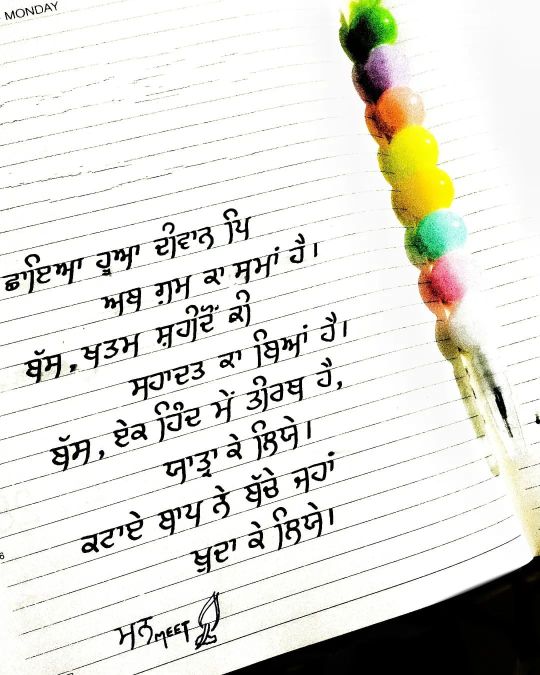 MONDAY
ਛਾਇਆ ਹੂਆ ਦੀਵਾਨ ਪਿ
ਅਬ ਗ਼ਮ ਕਾ ਸਮਾਂ ਹੈ।
ਬੱਸ, ਖਤਮ ਸ਼ਹੀਦੋਂ ਕੀ
ਸਹਾਦਤ ਕਾ ਬਿਆਂ ਹੈ।
ਬੱਸ, ਏਕ ਹਿੰਦ ਮੇਂ ਤੀਰਥ ਹੈ,
ਯਾਤ੍ਰਾ ਕੇ ਲਿਯੇ।
ਕਟਾਏ ਬਾਪ ਨੇ ਬੱਚੇ ਜਹਾਂ
ਖੁਦਾ ਕੇ ਲਿਯੇ।
ਮਨMEET